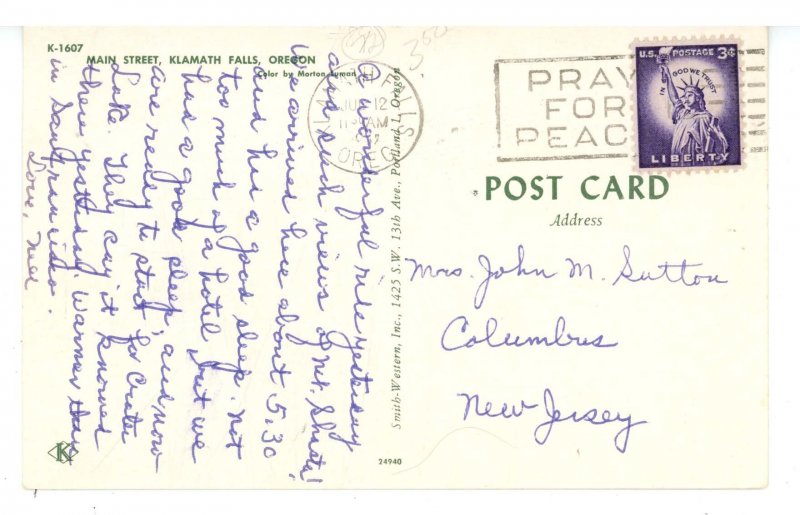 K-1607
MAIN STREET, KLAMATH FALLS, OREGON
Color by Morton Lyman
350
A wonderful ride yesterday
and such views of Mt. Shasta!
We arrived here about 5:30
and had a good sleep. Not
too much of a hotel, but we
had a good sleep, and now
are ready to start for Crater
Lake. They say it snowed
there yesterday. Warmer than
in San Francisco.
Love, Nell
K
24940
Smith-Western, Inc., 1425 S.W. 13th Ave., Portland 1, Oregon
KLAMATH FALLS
JUN 12
11 AM
OREG
PRAY
FOR
PEACE
U.S. POSTAGE 3¢
IN GOD WE TRUST
LIBERTY
POST CARD
Address
Mrs. John M. Sutton
Columbus
New Jersey